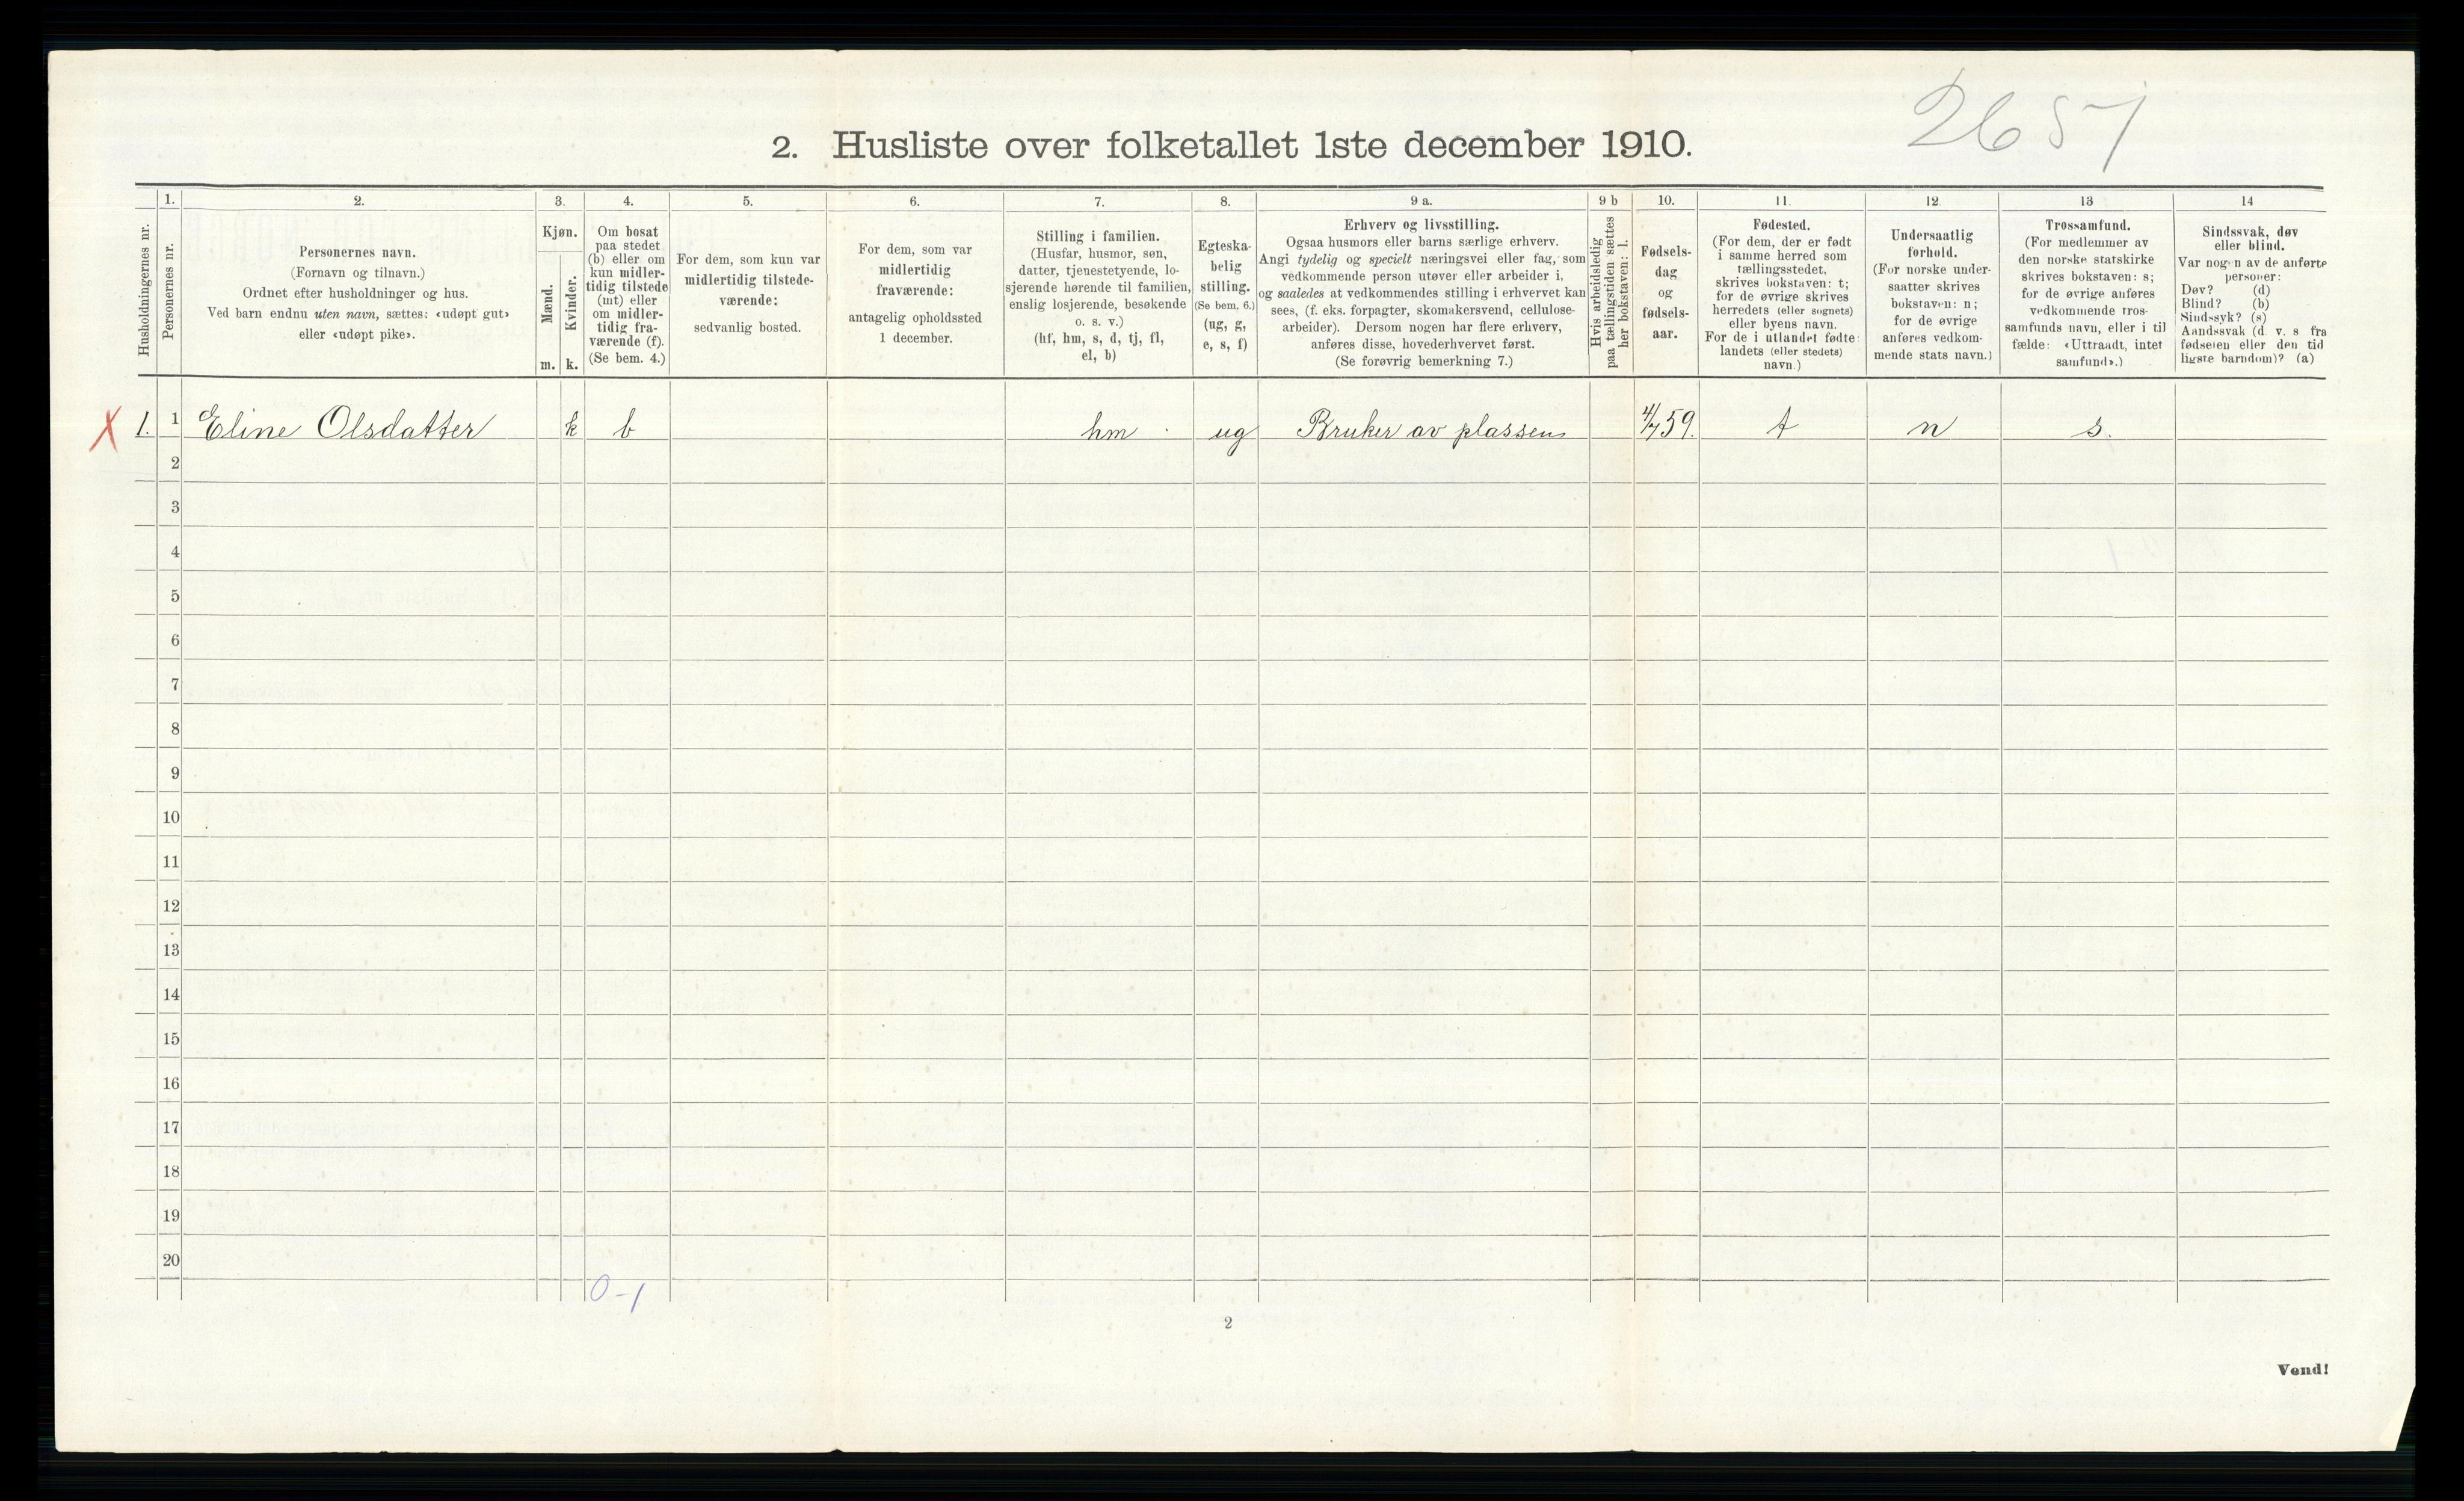 2657
2. Husliste over folketallet 1ste december 1910.
Husholdningernes nr.
1.
Personernes nr.
2.
Personernes navn.
(Fornavn og tilnavn.)
Ordnet efter husholdninger og hus.
Ved barn endnu uten navn, sættes: «udøpt gut»
eller «udøpt pike».
3.
Kjøn.
Mænd.
Kvinder.
m. k.
4.
Om bosat
paa stedet
(b) eller om
kun midler-
tidig tilstede
(mt) eller
om midler-
tidig fra-
værende (f).
(Se bem. 4.)
5.
For dem, som kun var
midlertidig tilstede-
værende:
sedvanlig bosted.
6.
For dem, som var
midlertidig
fraværende:
antagelig opholdssted
1 december.
7.
Stilling i familien.
(Husfar, husmor, søn,
datter, tjenestetyende, lo-
sjerende hørende til familien,
enslig losjerende, besøkende
o. s. v.)
(hf, hm, s, d, tj, fl,
el, b)
8.
Egteska-
belig
stilling.
(Se bem. 6.)
(ug, g,
e, s, f)
9 a.
Erhverv og livsstilling.
Ogsaa husmors eller barns særlige erhverv.
Angi tydelig og specielt næringsvei eller fag, som
vedkommende person utøver eller arbeider i,
og saaledes at vedkommendes stilling i erhvervet kan
sees, (f. eks. forpagter, skomakersvend, cellulose-
arbeider). Dersom nogen har flere erhverv,
anføres disse, hovederhvervet først.
(Se forøvrig bemerkning 7.)
9 b
Hvis arbeidsledig
paa tællingstiden sættes
her bokstaven: l.
10.
Fødsels-
dag
og
fødsels-
aar.
11.
Fødested.
(For dem, der er født
i samme herred som
tællingsstedet,
skrives bokstaven: t;
for de øvrige skrives
herredets (eller sognets)
eller byens navn.
For de i utlandet fødte:
landets (eller stedets)
navn.)
12.
Undersaatlig
forhold.
(For norske under-
saatter skrives
bokstaven: n;
for de øvrige
anføres vedkom-
mende stats navn.)
13
Trossamfund.
(For medlemmer av
den norske statskirke
skrives bokstaven: s;
for de øvrige anføres
vedkommende tros-
samfunds navn, eller i til
fælde: «Uttraadt, intet
samfund».)
14
Sindssvak, døv
eller blind.
Var nogen av de anførte
personer:
Døv? (d)
Blind? (b)
Sindssyk? (s)
Aandssvak (d. v. s fra
fødselen eller den tid
ligste barndom)? (a)
X 1. 1 Eline Olsdatter k b hm ug Bruker av plassen 4/7 59. t n s.
2
3
4
5
6
7
8
9
10
11
12
13
14
15
16
17
18
19
20
0-1
2
Vend!